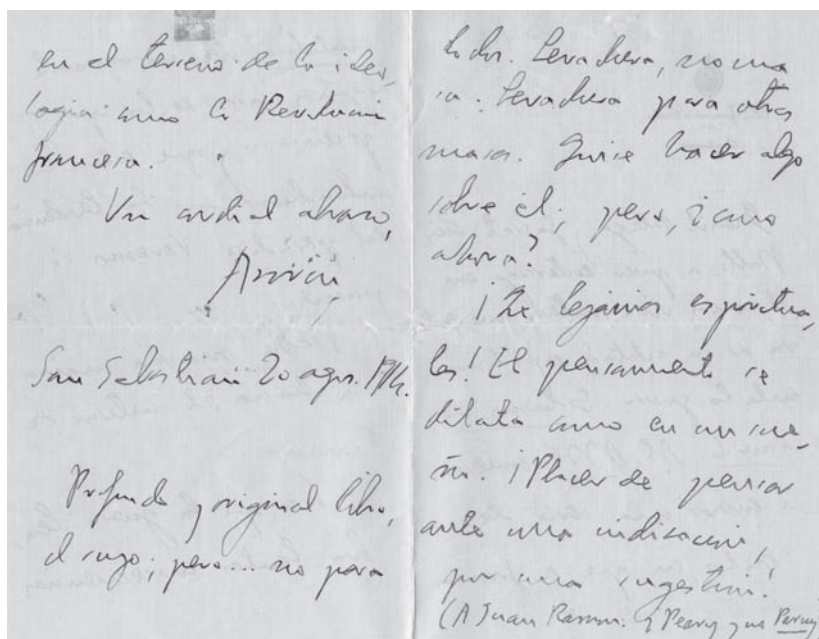 en el terreno de la ideo-
logia como la Revolucion
francesa.
Un cordial abrazo,
Azorín
San Sebastian 20 agos. 1914.
Profundo y original libro,
el suyo; pero... no para
todos. Levadura, no ma-
sa. Levadura para otras
masas. Quise hacer algo
sobre él; pero, ¿como
ahora?
¡De lejanias espiritua-
les! El pensamiento se
dilata como en un sue-
ño. ¡Placer de pensar
ante una indicacion,
por una sugestion!
(A Juan Ramon. Y Pearny y no